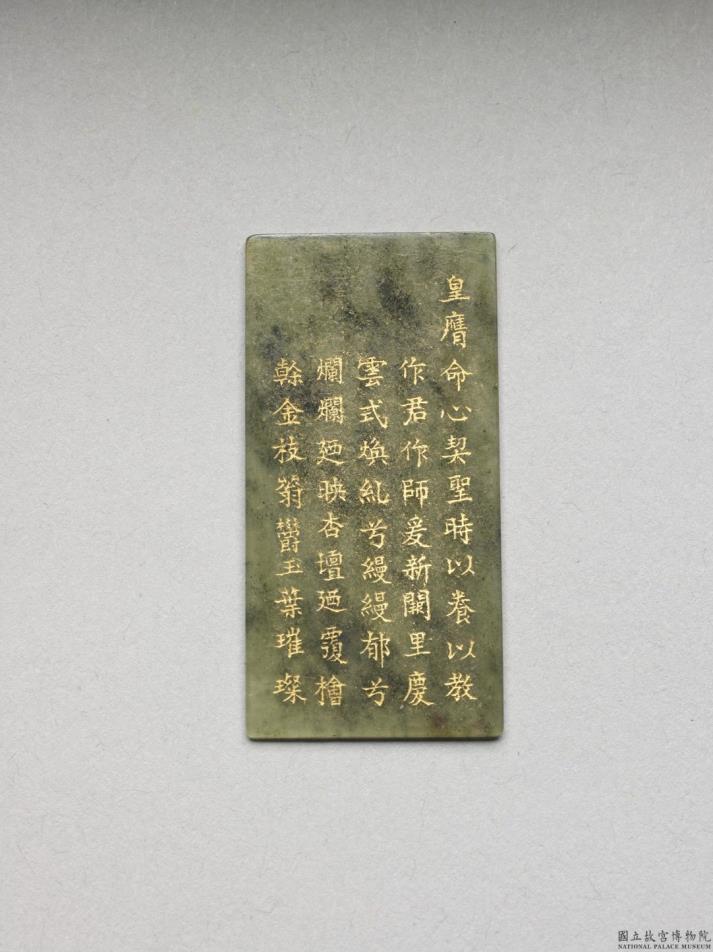 皇膺命心契聖時以養以教
作君作師爰新闕里慶
雲式煥糺兮縵縵郁兮
爛爛廼映杏壇廼覆檜
榦金枝蓊欝玉葉璀璨
國立故宮博物院
NATIONAL PALACE MUSEUM